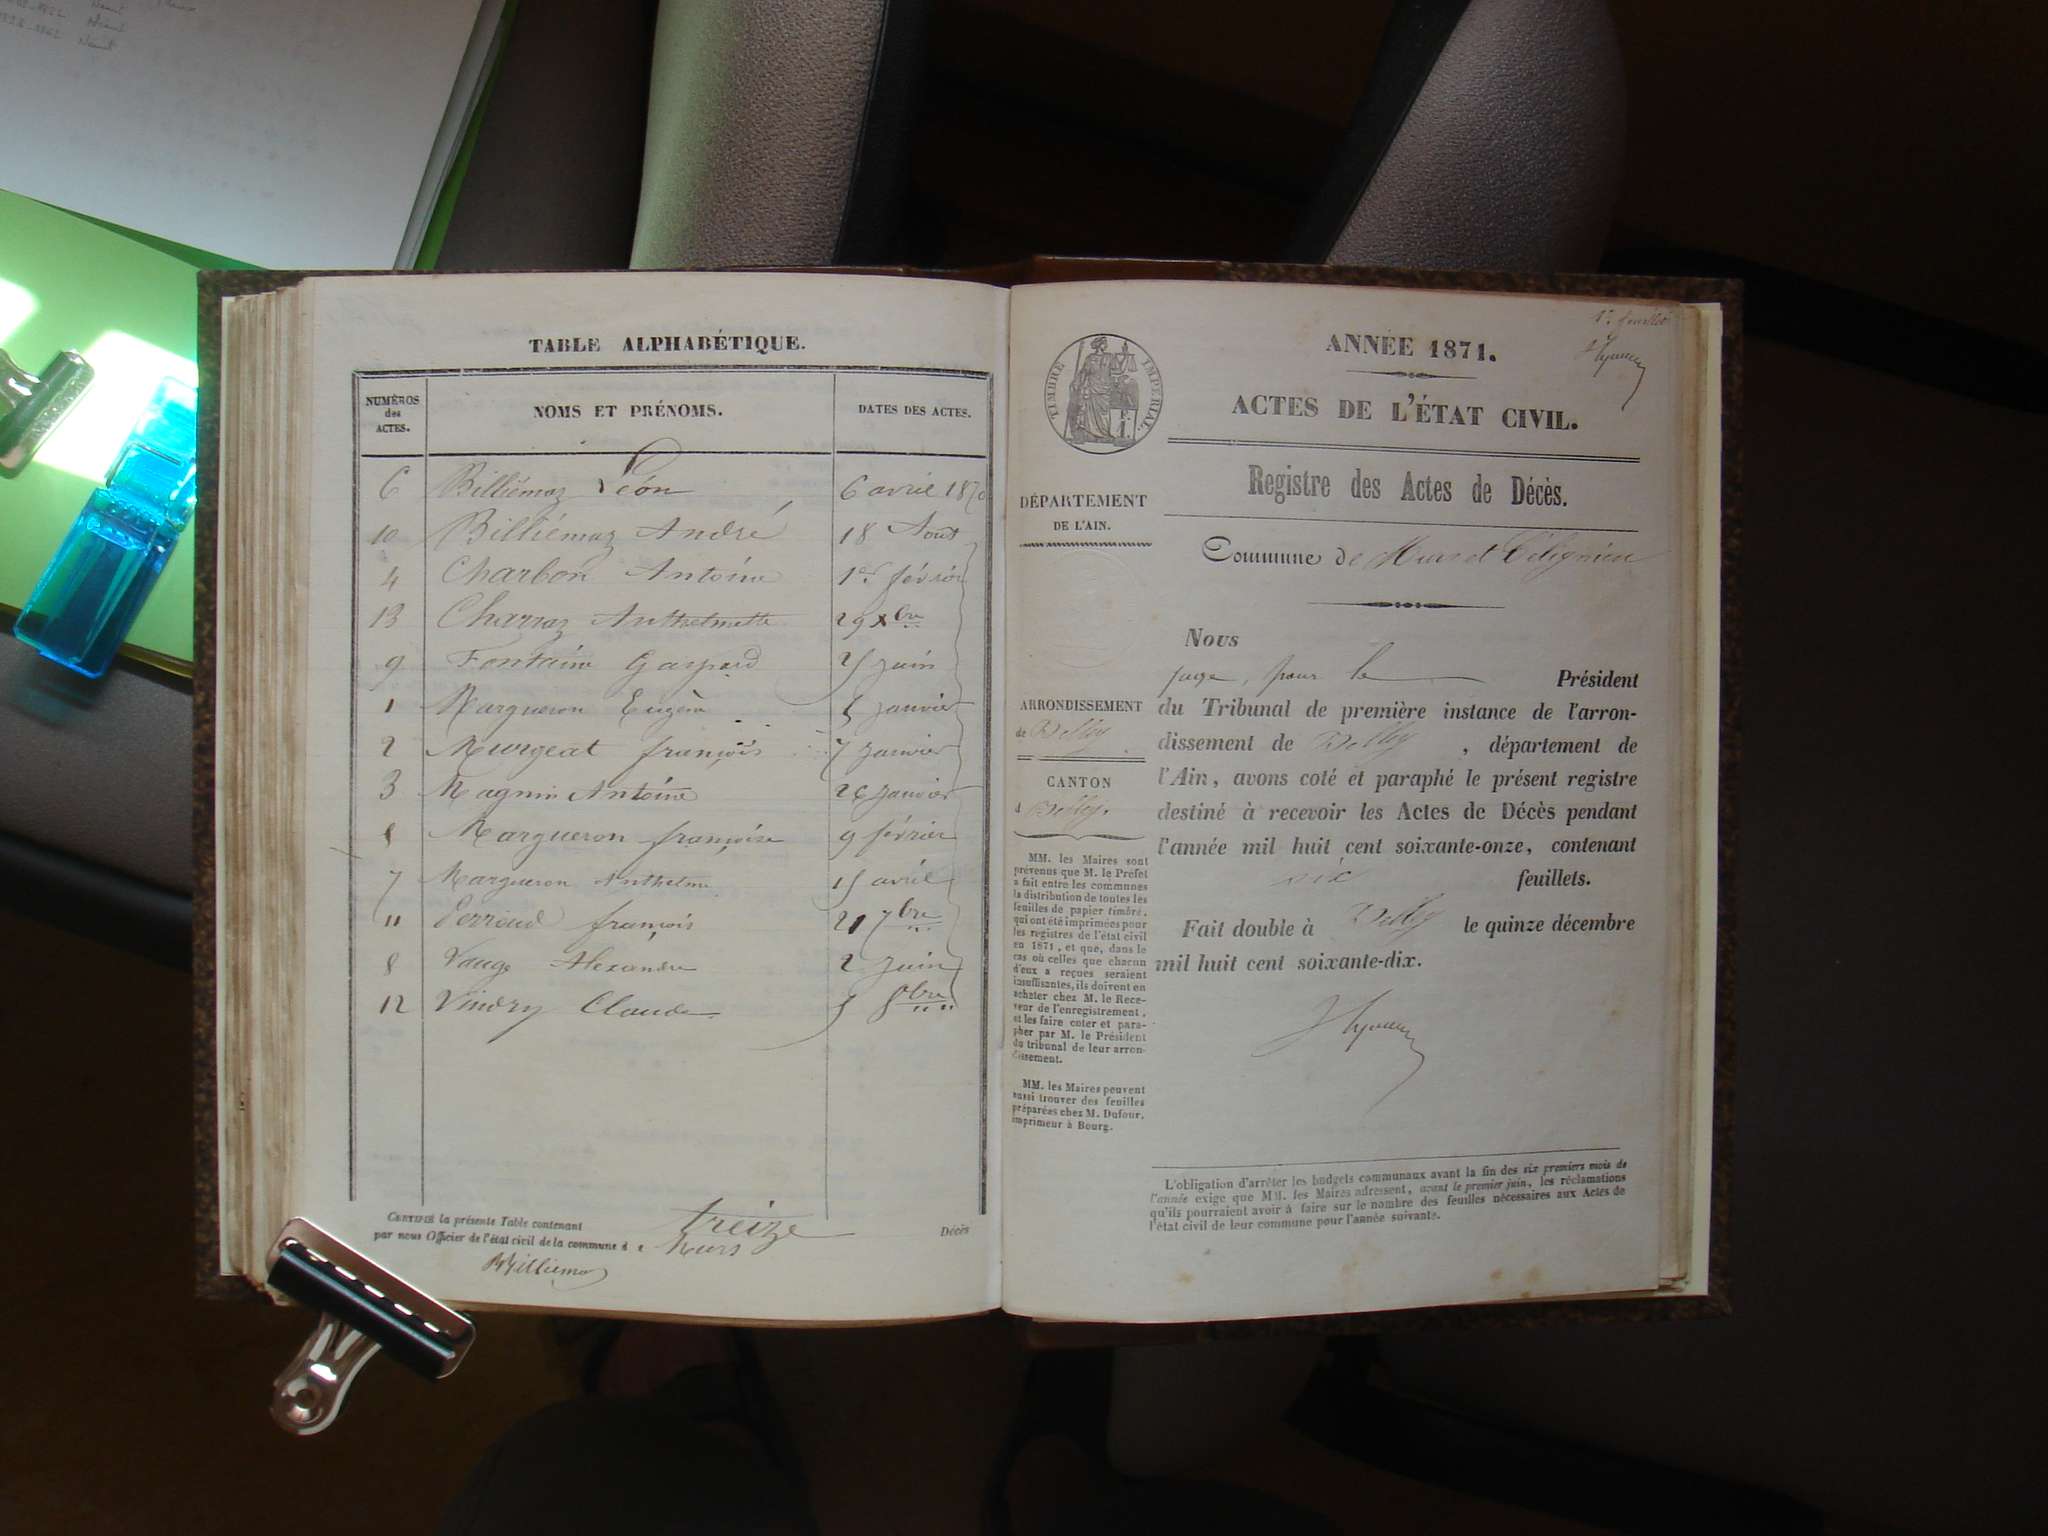 TABLE ALPHABÉTIQUE.
NUMÉROS des ACTES. NOMS ET PRÉNOMS. DATES DES ACTES.
6 Billiémaz Léon 6 avril 1870
10 Billiémaz André 18 Aout
4 Charbon Antoine 1er février
13 Charraz Anthelmette 29 Xbre
9 Fontaine Gaspard 25 juin
1 Margueron Eugène 5 janvier
2 Murgeat françois 7 janvier
3 Magnin Antoine 26 janvier
5 Margueron françoise 9 février
7 Margueron Anthelme 15 avril
11 Perroud françois 21 7bre
8 Vauge Alexandre 2 juin
12 Vindry Claude 5 8bre
CERTIFIÉ la présente Table contenant treize Décès
par nous Officier de l'état civil de la commune d e Murs
Billiemaz
1er feuillet
TIMBRE IMPÉRIAL.
ANNÉE 1871.
ACTES DE L'ÉTAT CIVIL.
Registre des Actes de Décès.
DÉPARTEMENT
DE L'AIN.
Commune de Murs et Gélignieu
ARRONDISSEMENT
de Belley
CANTON
d Belley.
MM. les Maires sont
prévenus que M. le Préfet
a fait entre les communes
la distribution de toutes les
feuilles de papier timbré,
qui ont été imprimées pour
les registres de l'état civil
en 1871, et que, dans le
cas où celles que chacun
d'eux a reçues seraient
insuffisantes, ils doivent en
acheter chez M. le Rece-
veur de l'enregistrement,
et les faire coter et para-
pher par M. le Président
du tribunal de leur arron-
dissement.
MM. les Maires peuvent
aussi trouver des feuilles
préparées chez M. Dufour,
imprimeur à Bourg.
Nous
juge, pour le Président
du Tribunal de première instance de l'arron-
dissement de Belley, département de
l'Ain, avons coté et paraphé le présent registre
destiné à recevoir les Actes de Décès pendant
l'année mil huit cent soixante-onze, contenant
six feuillets.
Fait double à Belley le quinze décembre
mil huit cent soixante-dix.
L'obligation d'arrêter les budgets communaux avant la fin des six premiers mois de
l'année exige que MM. les Maires adressent, avant le premier juin, les réclamations
qu'ils pourraient avoir à faire sur le nombre des feuilles nécessaires aux Actes de
l'état civil de leur commune pour l'année suivante.